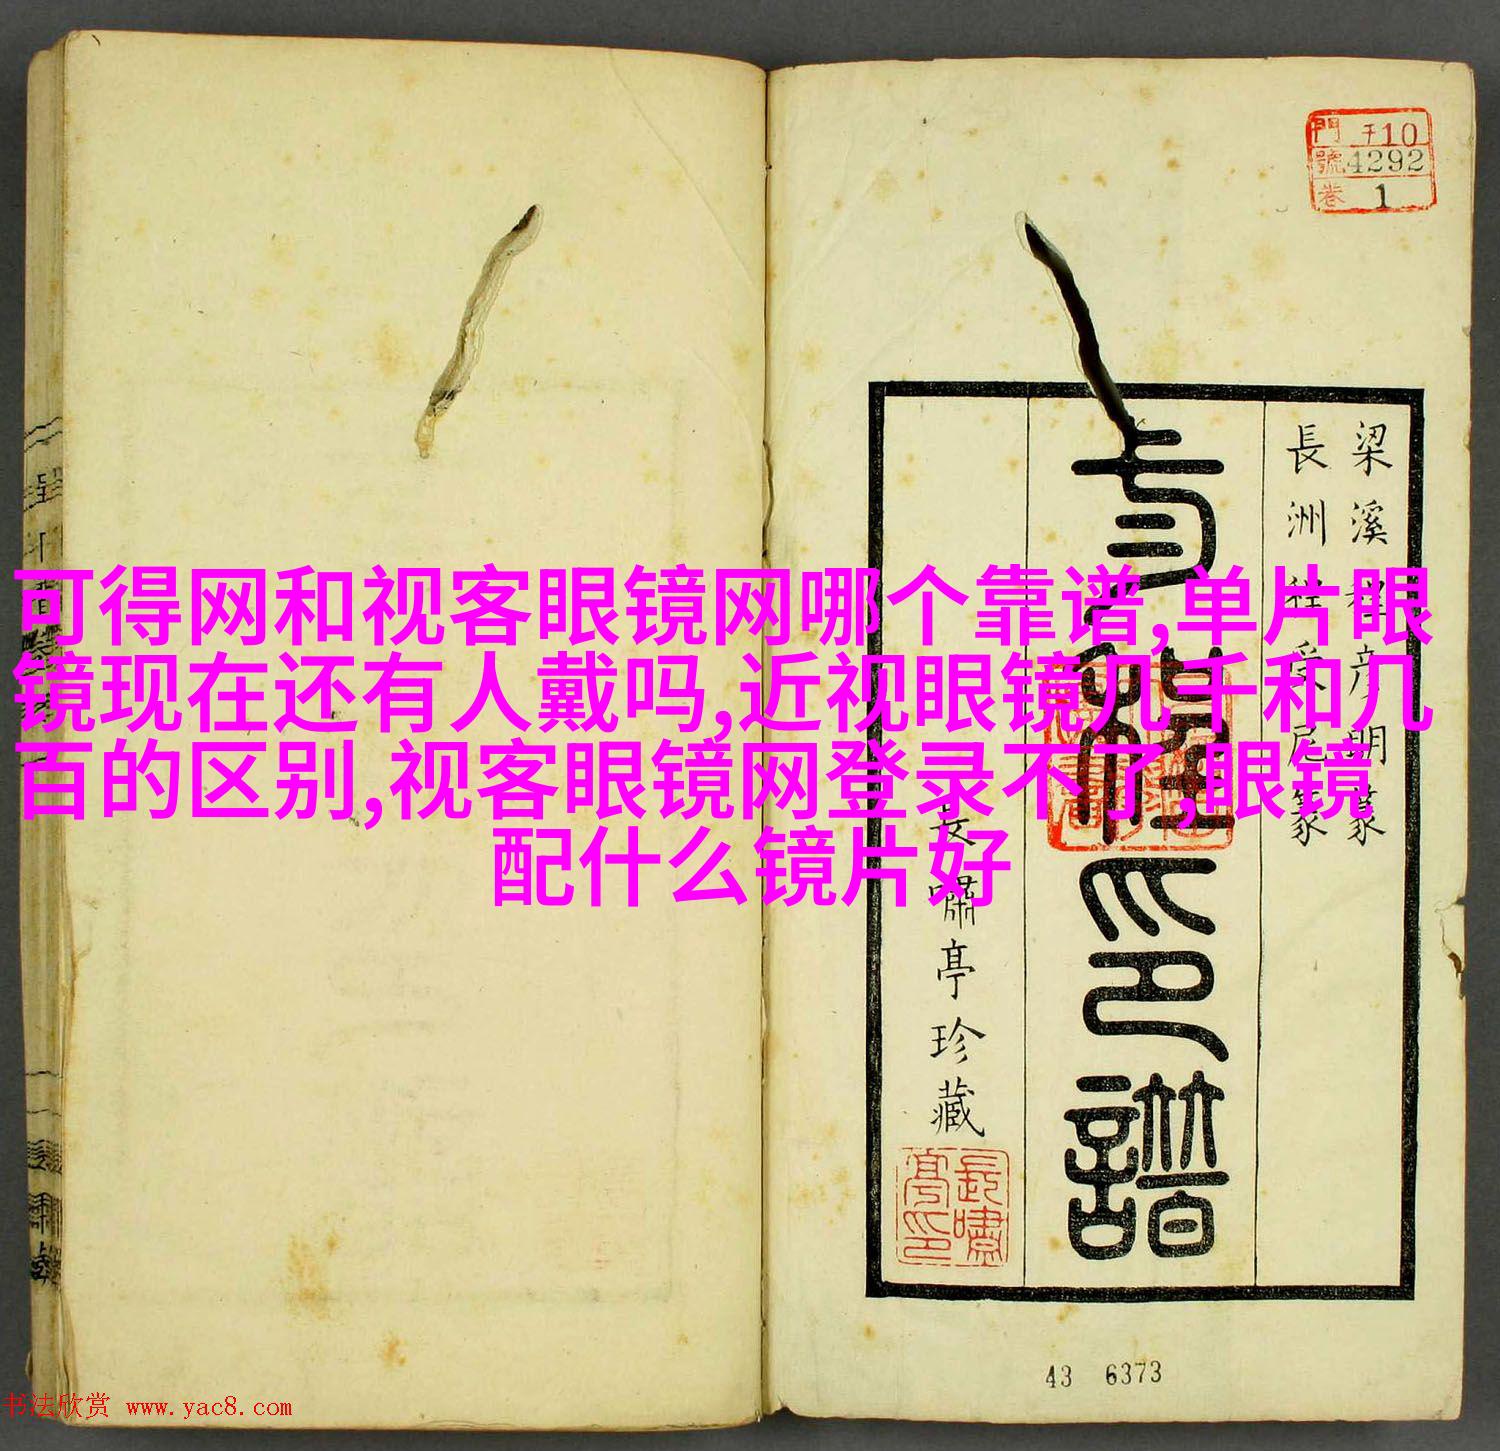 可得网和视客眼镜网哪个靠谱,单片眼
镜现在还有人戴吗,近视眼镜几千和几
百的区别,视客眼镜网登录不了,眼镜
配什么镜片好
門 千10
號 4292
卷 1
梁溪 程彦明篆
長洲 程受尼篆
印譜
長嘯亭珍藏
長嘯亭印
43 6373
书法欣赏 www.yac8.com